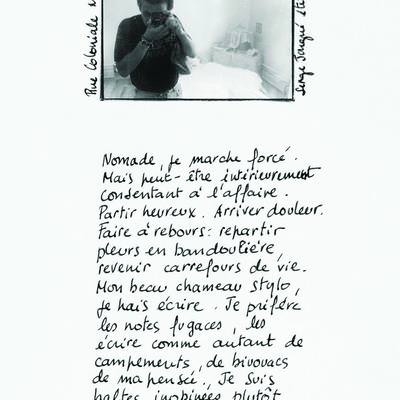 Rue Coloniale
Serge Janqué
Nomade, je marche forcé.
Mais peut-être intérieurement
consentant à l'affaire.
Partir heureux. Arriver douleur.
Faire à rebours: repartir
pleurs en bandoulière,
revenir carrefours de vie.
Mon beau chameau stylo,
je hais écrire. Je préfère
les notes fugaces, les
écrire comme autant de
campements, de bivouacs
de ma pensée. Je suis
haltes inopinées plutôt